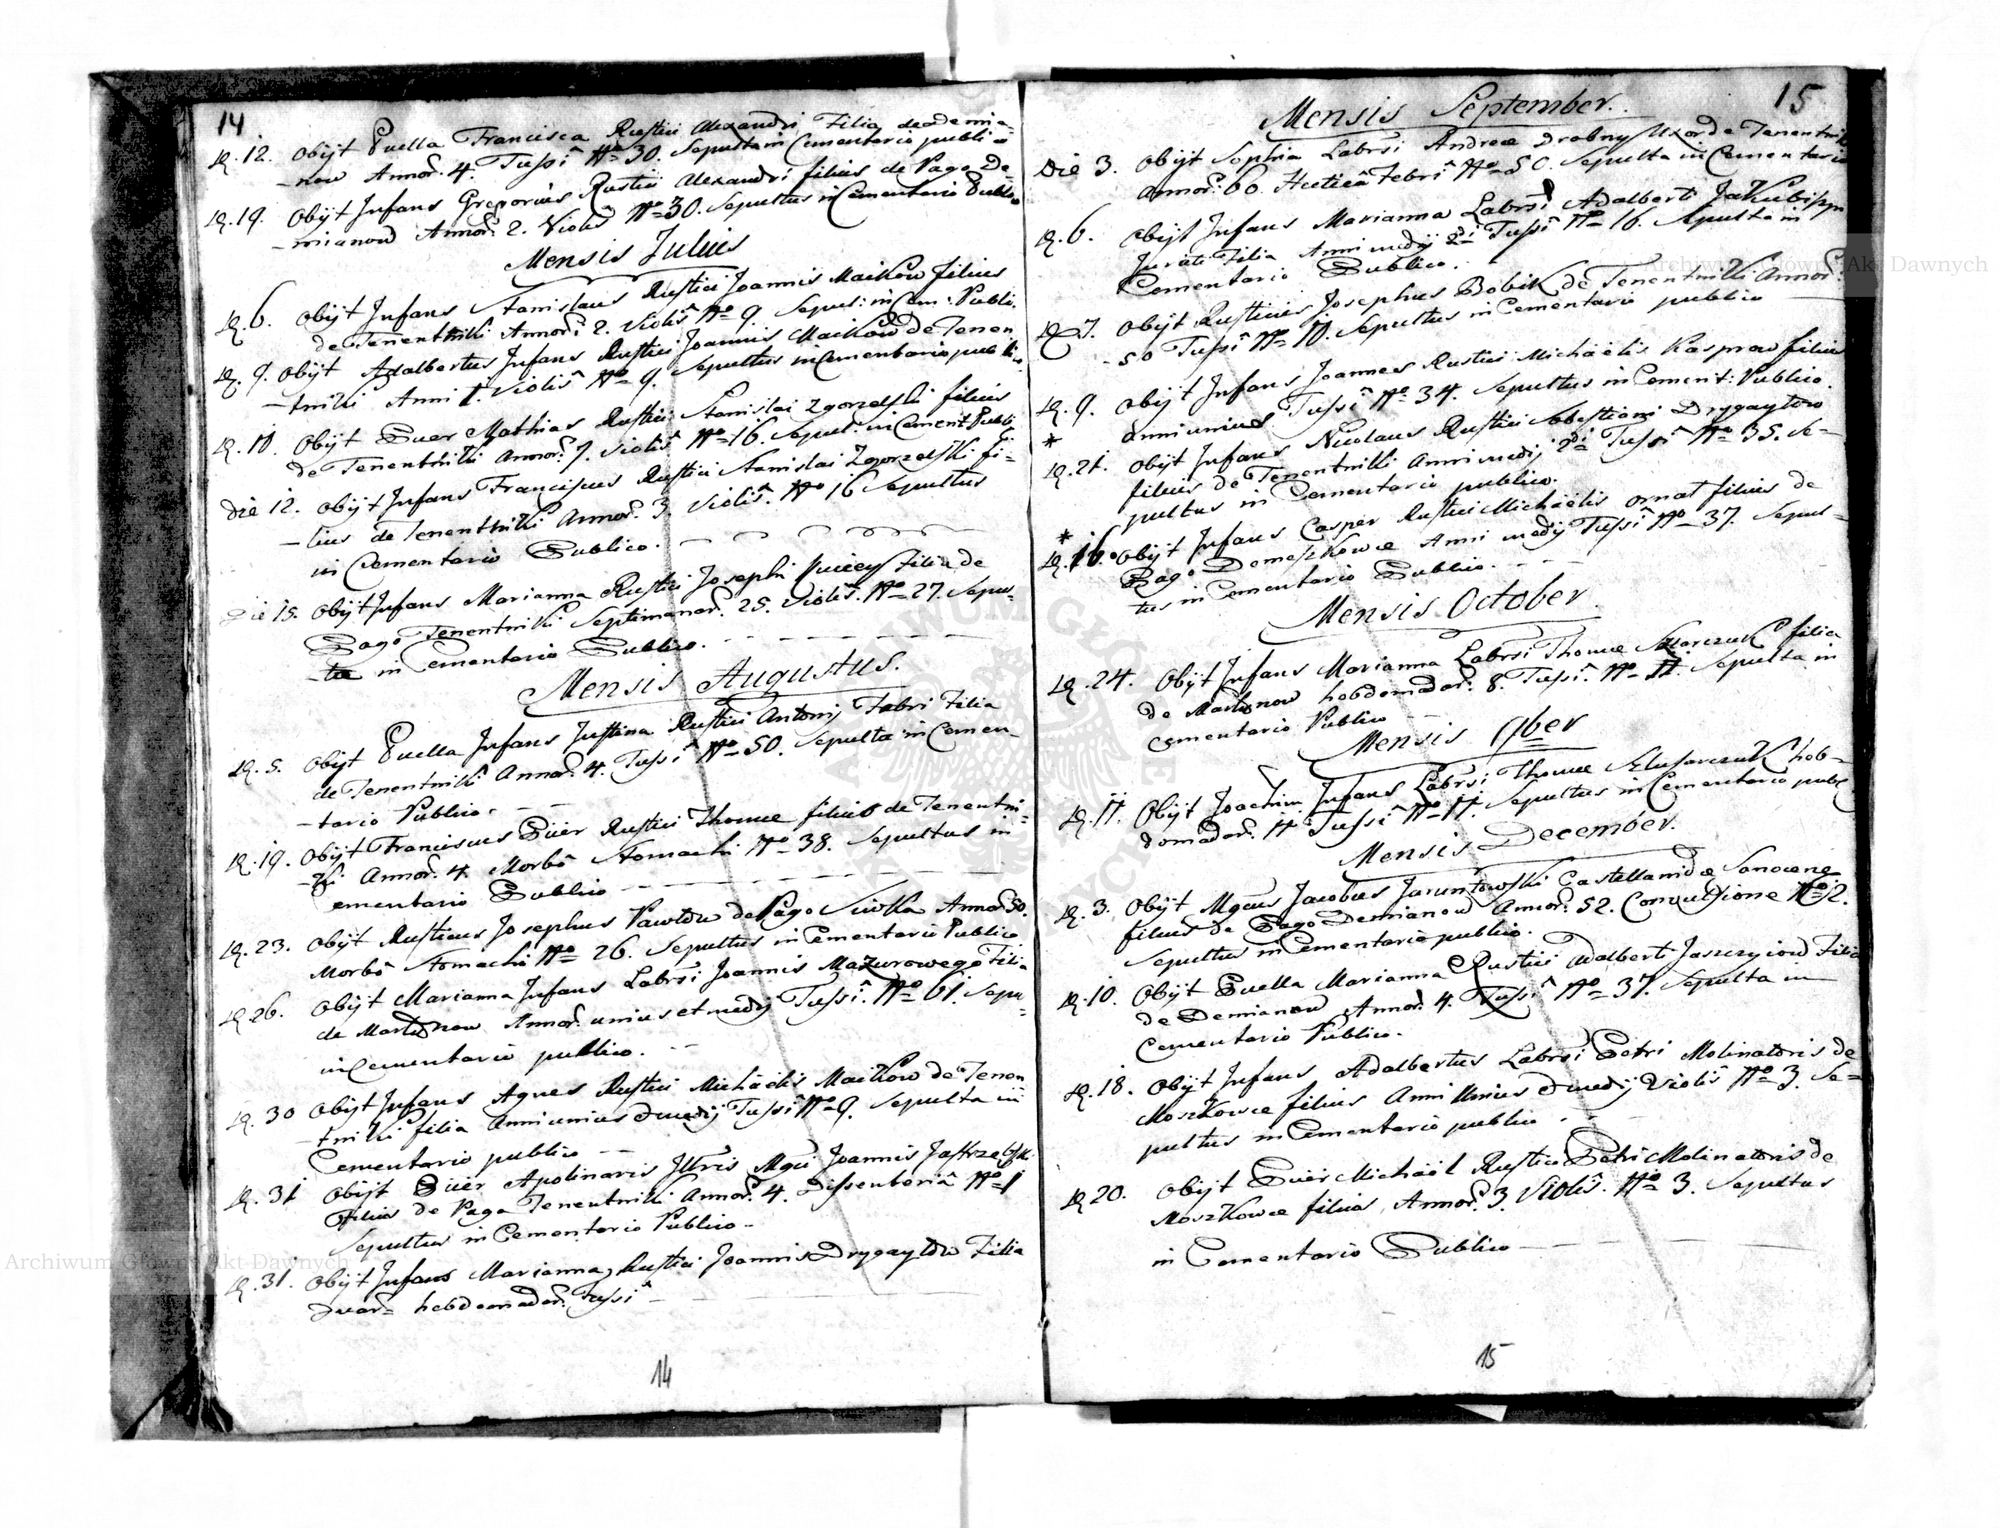 14
D. 12. Obijt Puella Francisca Rustici Alexandri Filia de demia-
-now Annor. 4. Tussî No 30. Sepulta in Cementario publico
D. 19. Obijt Infans Gregorius Rustici Alexandri filius de Pago De-
-mianow Annor. 2. Violis No 30. Sepultus in Cementario Publico
Mensis Julius
D. 6. Obijt Infans Stanislaus Rustici Joannis Maikow filius
de Tenentniki Annor. 2. Violis No 9. Sepul: in Cem: Publi.
D. 9. Obijt Adalbertus Infans Rustici Joannis Maikow de Tenen
-tniki Anni 1. Violis No 9. Sepultus in Cementario publi-
D. 10. Obijt Puer Mathias Rustici Stanislai Zgorzelski filius
de Tenentniki Annor. 7. Violis No 16. Sepul: in Cement Publi
Die 12. Obijt Infans Franciscus Rustici Stanislai Zgorzelski fi-
-lius de Tenentniki Annor. 3. Violis. No 16 Sepultus
in Cementario Publico.
Die 15. Obijt Infans Marianna Rustici Josephi Filia de
Pago Tenentniki Septimanar. 25. Violis. No 27. Sepu-
-ta in Cementario Publico.
Mensis Augustus.
D. 5. Obijt Puella Infans Justina Rustici Antonij Fabri Filia
de Tenentniki Annor. 4. Tussî No 50. Sepulta in Cemen-
-tario Publico.
D. 19. Obijt Franciscus Puer Rustici Thomae filius de Tenentni-
-ki Annor. 4. Morbô Stomachi No 38. Sepultus in
ementario Publico
D. 23. Obijt Rusticus Josephus Pawlow de Pago Siwka Annor. 50.
Morbô Stomachi No 26. Sepultus in Cementario Publico
D 26. Obijt Marianna Infans Labrsi Joannis Mazurowego Filia
de Martynow Annor. unius et medij Tussî. No 61. Sepu-
in Cementario publico.
D. 30 Obijt Infans Agnes Rustici Michaëlis Maikow de Tenen
-tniki filia Anni unius & medij Tussî No 9. Sepulta in
Cementario publico
D. 31 Obijt Puer Apolinaris Mgci Joannis Jastrzębsk.
Filius de Pago Tenentniki Annor. 4. Dissenteriâ No 1
Sepultus in Cementario Publico
D. 31. Obijt Infans Marianna Rustici Joannis Drygaytow Filia
Duar= hebdomadar. Tussî
14
15
Mensis September.
Die 3. Obijt Sophia Labrsi Andreae Drabny Uxor de Tenentniki
Annor. 60. Hecticâ Febri No 50. Sepulta in Cementario
D. 6. Obijt Infans Marianna Labrsi Adalberti
Jurati Filia Anni medij 2di Tussî No 16. Sepulta in
Cementario Publico.
D 7. Obijt Rusticus Josephus Bobik de Tenentniki Annor.
50 Tussî No 10. Sepultus in Cementario publico
D. 9. Obijt Infans Joannes Rustici Michaëlis Kasprow filius
anni unius Tussî No 34. Sepultus in Cement: Publico.
*
D. 21. Obijt Infans Nicolaus Rustici Sebestiani Drygaytow
filius de Tenentniki Anni medij 2di Tussî No 35. Se-
pultus in Cementario publico.
*
D. 16. Obijt Infans Casper Rustici Michaëlis ornat filius de
Pago Demeszkowce Anni medij Tussî No 37. Sepul-
tus in Cementario Publico.
Mensis October
D. 24. Obijt Infans Marianna Labrsi Thomae filia
de Martynow hebdomadar. 8. Tussî. No 11. Sepulta in
Cementario Publico
Mensis 9ber
D. 11. Obijt Joachim Infans Labrsi Thomae Szlusarczuk heb-
domadar. 11 Tussî No 11. Sepultus in Cementario publ
Mensis December.
D. 3. Obijt Mgcus Jacobus Jaruntowski Castellanidae Sanocene
filius de Pago Demianow Annor. 52. Convulsione No 2.
Sepultus in Cementario publico.
D. 10. Obijt Puella Marianna Rustici Adalberti Jaszczyiow Filia
de Demianow Annor. 4. Tussî No 37. Sepulta in
Cementario Publico.
D. 18. Obijt Infans Adalbertus Labrsi Petri Molinatoris de
Moszkowce filius Anni Unius & medij Violis No 3. Se-
pultus in Cementario publico.
D. 20. Obijt Puer Michaël Rustici Petri Molinatoris de
Moszkowce filius, Annor. 3. Violis. No 3. Sepultus
in Cementario Publico
15
Archiwum Główne Akt Dawnych
Archiwum Główne Akt Dawnych